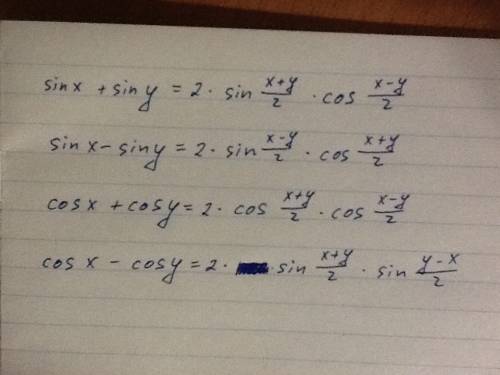 sin x + sin y = 2 · sin (x+y)/2 · cos (x-y)/2
sin x - sin y = 2 · sin (x-y)/2 · cos (x+y)/2
cos x + cos y = 2 · cos (x+y)/2 · cos (x-y)/2
cos x - cos y = 2 · sin (x+y)/2 · sin (y-x)/2